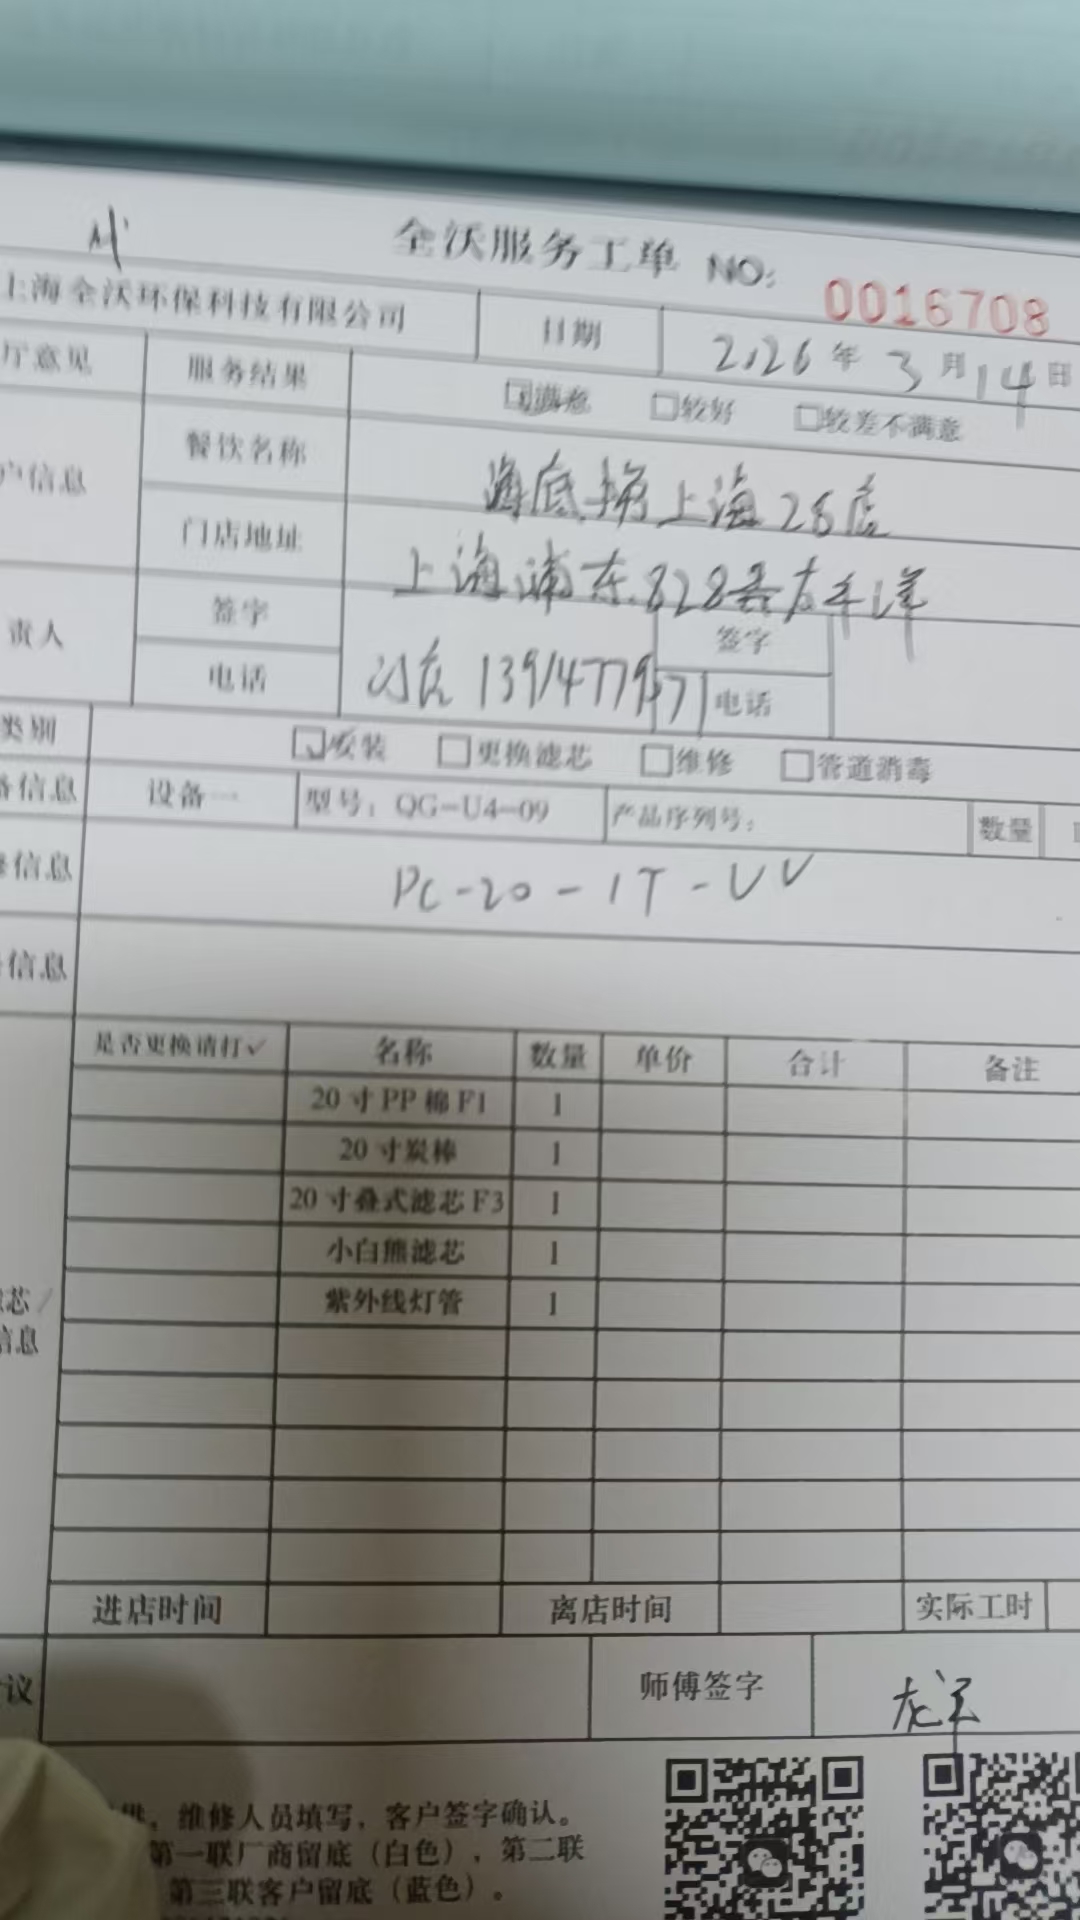 全沃服务工单 NO: 0016708
上海全沃环保科技有限公司 日期 2026年3月14日
厅意见 服务结果 ☑满意 □较好 □较差不满意
户信息 餐饮名称 海底捞上海28店
门店地址 上海浦东828
责人 签字 签字
电话 电话
类别 ☑安装 □更换滤芯 □维修 □管道消毒
备信息 设备一 型号：QG-U4-09 产品序列号： 数量
信息 PC-20-1T-UV
信息
是否更换请打✓ 名称 数量 单价 合计 备注
20寸PP棉F1 1
20寸炭棒 1
20寸叠式滤芯F3 1
小白熊滤芯 1
紫外线灯管 1
芯/
信息
进店时间 离店时间 实际工时
议 师傅签字
，维修人员填写，客户签字确认。
第一联厂商留底（白色），第二联
第三联客户留底（蓝色）。